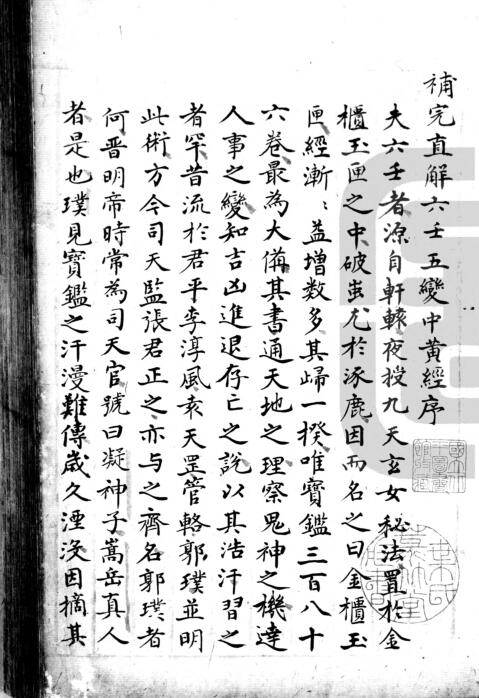 補完直解六壬五變中黄經序
夫六壬者源自軒轅夜授九天玄女秘法置於金
櫃玉匣之中破蚩尤於涿鹿因而名之曰金櫃玉
匣經漸〻益增数多其歸一揆唯寶鑑三百八十
六卷最為大備其書通天地之理察鬼神之機達
人事之變知吉凶進退存亡之說以其浩汗習之
者罕昔流於君平李淳風袁天罡管輅郭璞並明
此術方今司天監張君正之亦与之齊名郭璞者
何晋明帝時常為司天官號曰凝神子嵩岳真人
者是也璞見寶鑑之汗漫難傳歲久湮没因摘其